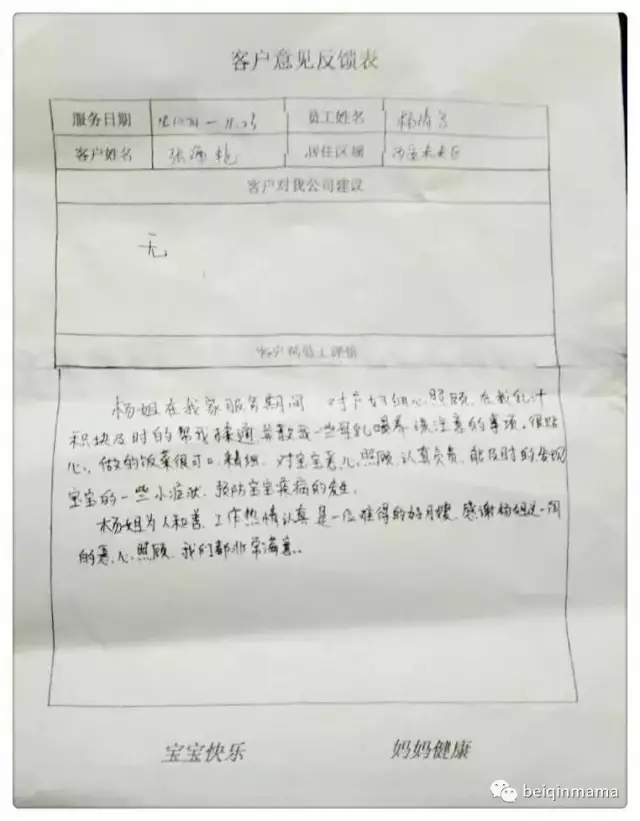 客户意见反馈表
服务日期 员工姓名
客户姓名 居住区域
客户对我公司建议
无
客户对员工评价
杨姐在我家服务期间 对产妇细心照顾 在我乳汁
积块及时的帮我揉通 并教我一些母乳喂养 该注意的事项 很贴
心, 做的饭菜很可口 精细. 对宝宝悉心照顾 认真负责 能及时的发现
宝宝的一些小症状. 预防宝宝疾病的发生.
杨姐为人和善 工作热情认真 是一位难得的好月嫂 感谢杨姐这一
的悉心照顾 我们都非常满意..
宝宝快乐 妈妈健康
beiqinmama